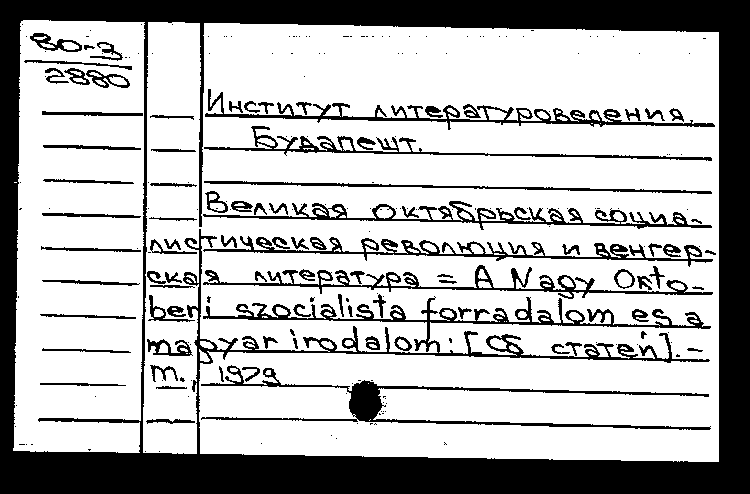 80-3
2880
Институт литературоведения.
Будапешт.
Великая октябрьская социа-
листическая революция и венгер-
ская литература = A Nagy Okto-
beri szocialista forradalom es a
magyar irodalom: [Сб статей]. -
m., 1979